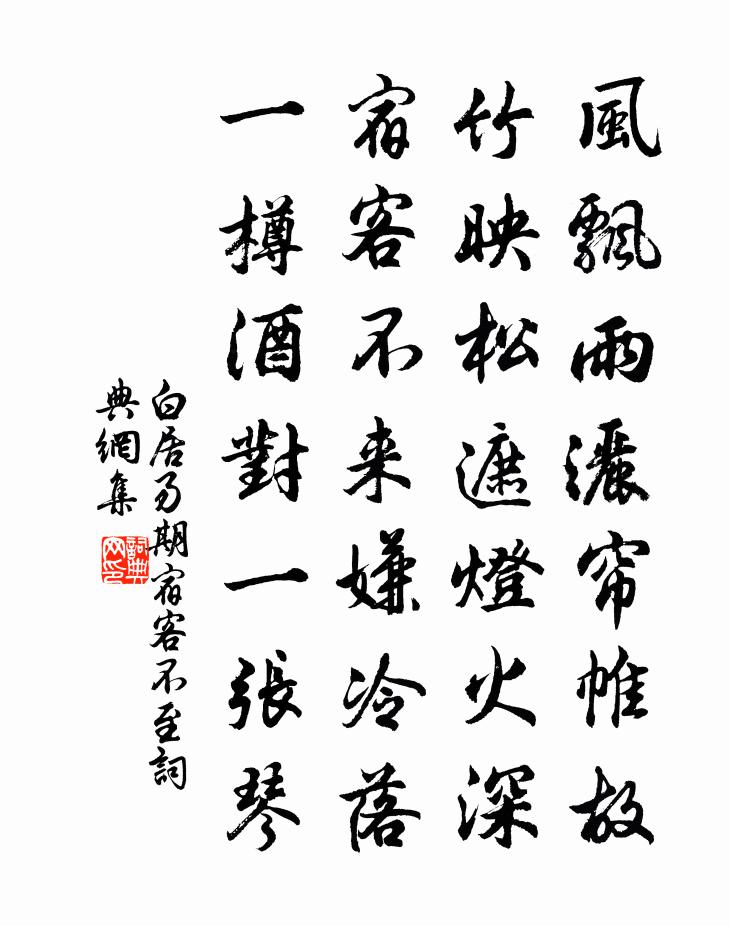 風飄雨灑帘帷故
竹映松遮燈火深
宿客不来嫌冷落
一樽酒對一張琴
白居易期宿客不至詞
典網集
詞典
网印